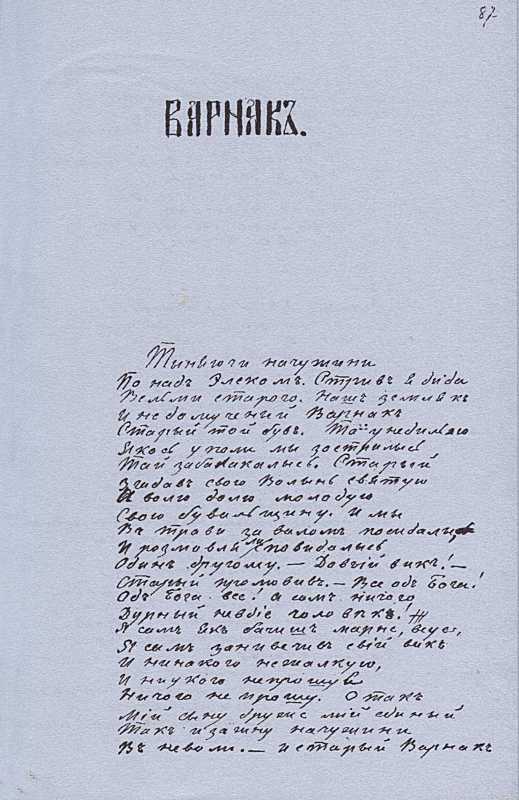 87
ВАРНАКЪ.
Тиняючи начужини
По надъ Элекомъ. Стривъ я дида
Вельми старого. Нашъ землякъ
И недомученый Варнакъ
Старый той бувъ. Та унедилю
Якось уполи мы зострилысь
Тай забалакалысь. Старый
Згадавъ свою Волынь святую
И волю долю молодую
Свою бувальщину. И мы
Въ трави за валомъ посидалы,
И розмовлялы сповидалысь
Одинъ другому. — Довгій викъ! —
Старый промовивъ. — Все одъ Бога!
Одъ Бога все! а самъ ничого
Дурный невдіе человикъ!
Я самъ якъ бачишъ марне, всує,
Я самъ занивечивъ свій викъ
И нинакого нежалкую,
И ниукого непрошу
Ничого не прошу. Отакъ
Мій сыну друже мій единый
Такъ изагину начужини
Въ неволи. — истарый Варнакъ